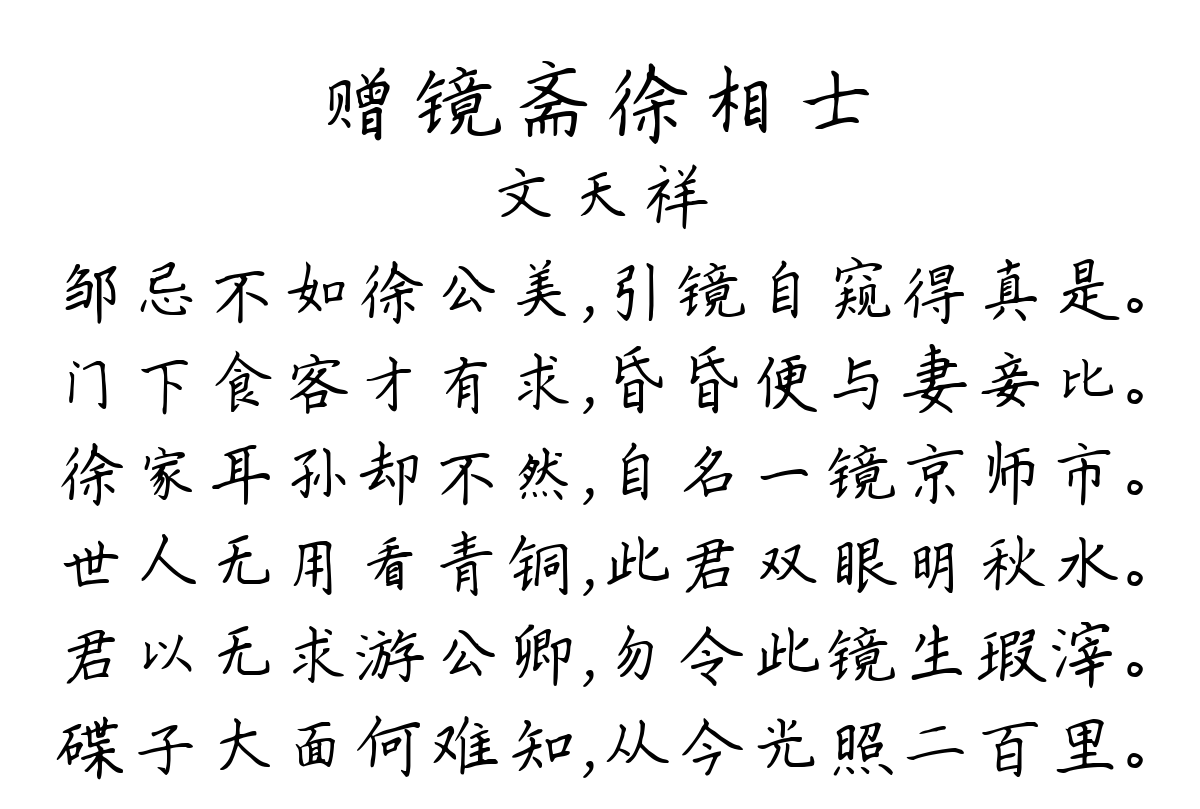 赠镜斋徐相士
文天祥
邹忌不如徐公美,引镜自窥得真是。
门下食客才有求,昏昏便与妻妾比。
徐家耳孙却不然,自名一镜京师市。
世人无用看青铜,此君双眼明秋水。
君以无求游公卿,勿令此镜生瑕滓。
碟子大面何难知,从今光照二百里。